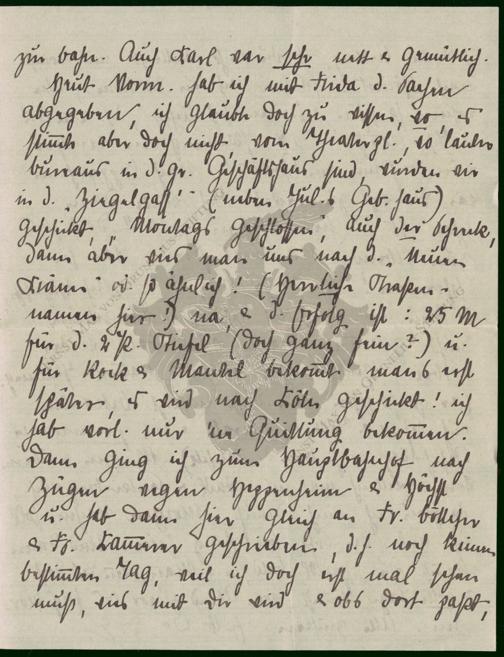 zur bahn. Auch Karl war sehr nett & gemütlich.
Heut Vorm. hab ich mit Frida d. Sachen
abgegeben, ich glaubte doch zu wissen, wo, es
stimmte aber doch nicht, vom Theaterpl., wo lauter
bureaus in d. gr. Geschäftshaus sind, wurden wir
in d. „Ziegelgass'" (neben Jul.s Geb. haus)
geschickt, „Montags geschlossen, auch der Schreck,
dann aber wies man uns nach d. „Neuen
Kräme" od. so ähnlich! (Herrliche Straßen-
namen hier!) na, & d. Erfolg ist: 25 M
für d. 2 Pr. Stiefel (doch ganz fein?) u.
für Rock & Mantel bekommt man's erst
später, es wird nach Köln geschickt! ich
hab vorl. nur 'ne Quittung bekommen.
Dann ging ich zum Hauptbahnhof nach
Zügen wegen Heppenheim & Höchst
u. hab dann hier gleich an Fr.
& Fr. Kammerer geschrieben, d.h. noch keinen
bestimmten Tag, weil ich doch erst mal sehen
muß, wies mit Dir wird & obs dort paßt,